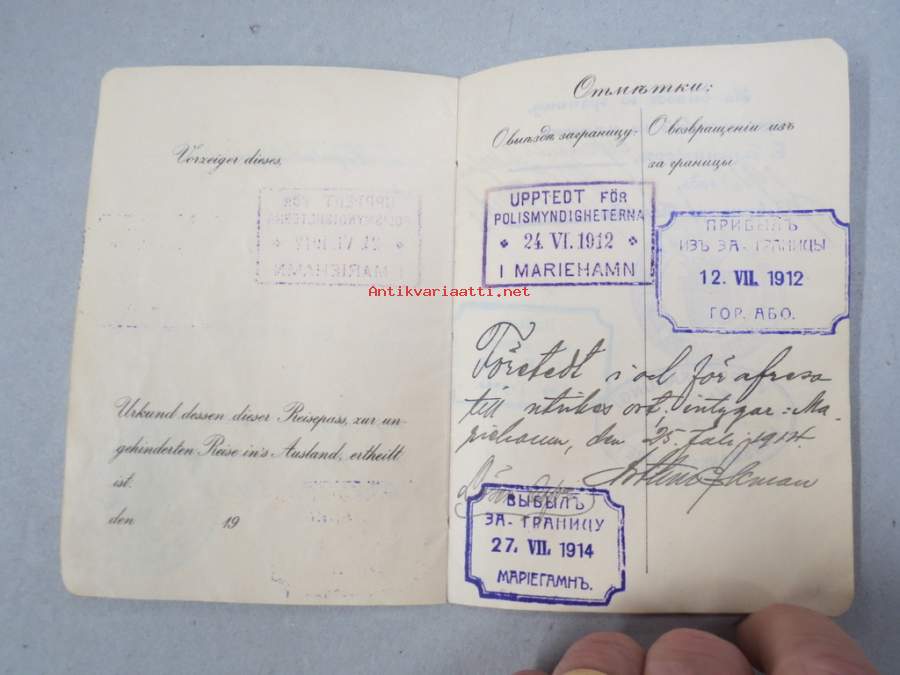 Vorzeiger dieses,
Urkund dessen dieser Reisepass, zur un-
gehinderten Reise in's Ausland, ertheilt
ist.
den 19
Отмѣтки:
О выѣздѣ заграницу.
О возвращеніи изъ
за границы
UPPTEDT FÖR
POLISMYNDIGHETERNA
24. VI. 1912
I MARIEHAMN
ПРИБЫЛЪ
ИЗЪ ЗА-ГРАНИЦЫ
12. VII. 1912
ГОР. АБО.
Antikvariaatti.net
Företedt i och för afresa
till utrikes ort, intygar: Ma-
riehamn, den 25. Juli 1914
ВЫБЫЛЪ
ЗА-ГРАНИЦУ
27. VII. 1914
МАРІЕГАМНЪ.